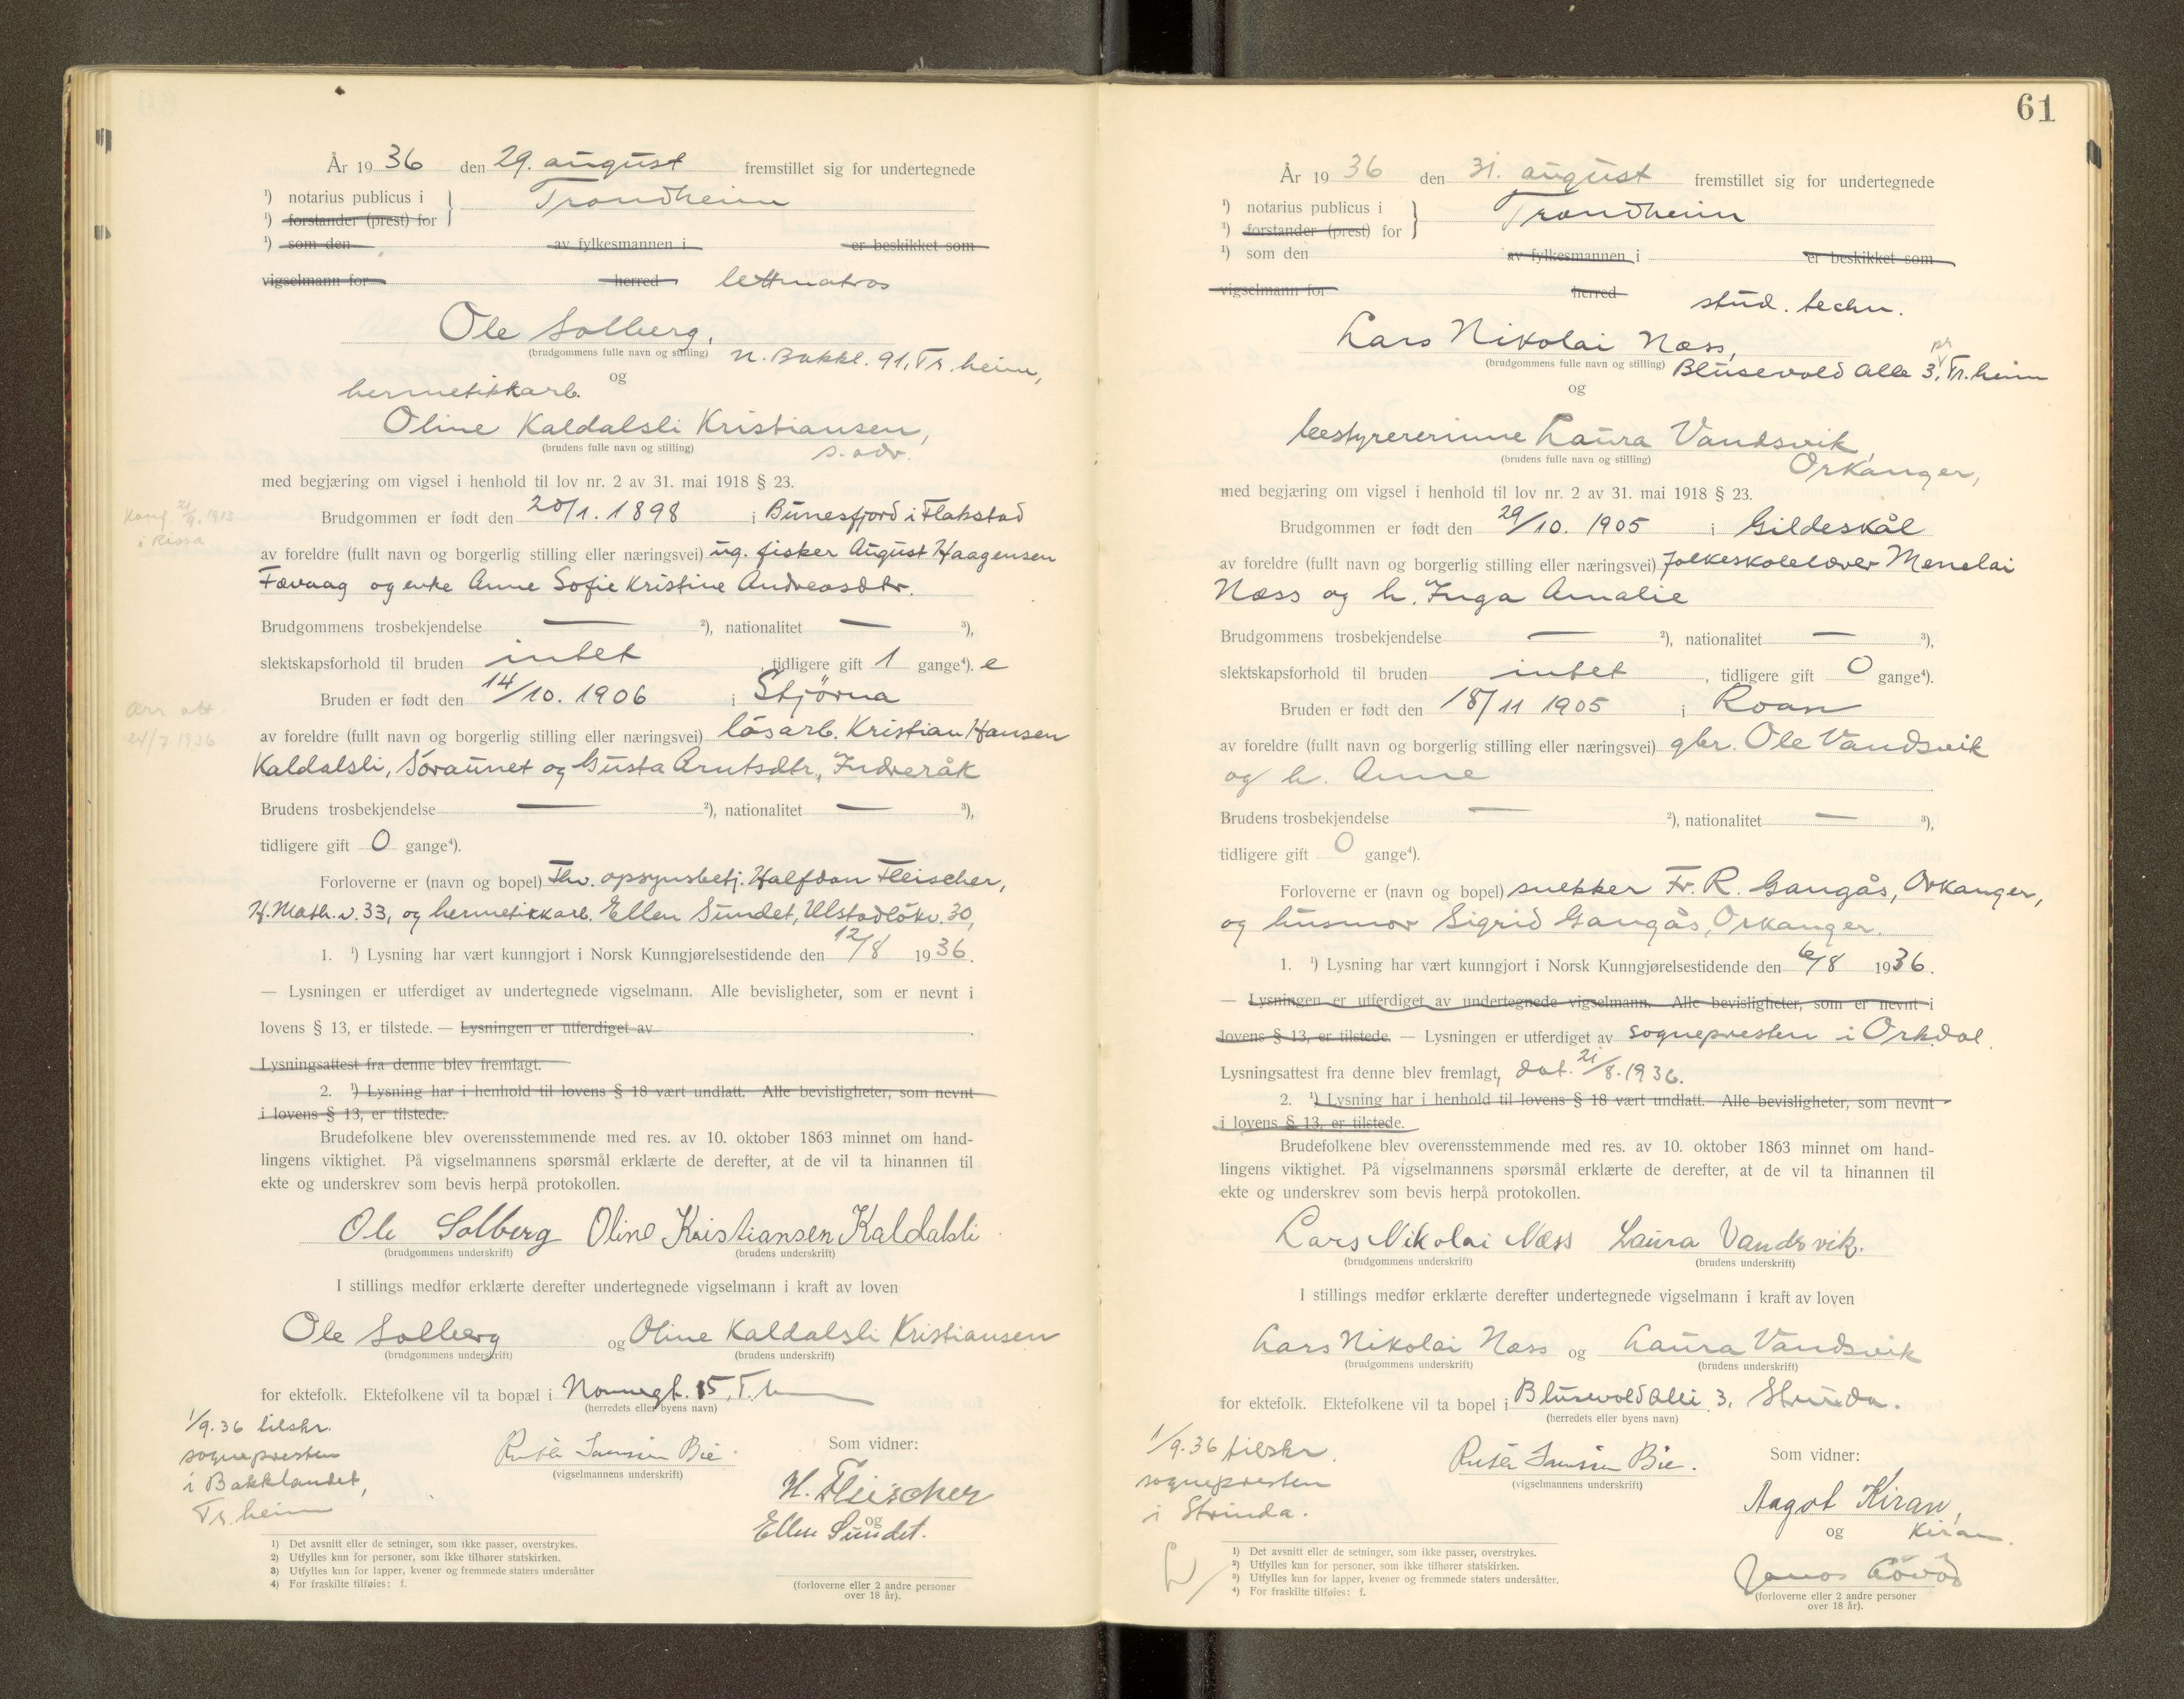 År 1936 den 29. august fremstillet sig for undertegnede
¹) notarius publicus i
Trondheim
¹) forstander (prest) for
¹) som den av fylkesmannen i er beskikket som
vigselmann for herred lettmatros
Ole Solberg,
(brudgommens fulle navn og stilling) N. Bakkl. 91, Tr.heim,
og
hermetikkarb.
Oline Kaldalsli Kristiansen,
(brudens fulle navn og stilling) s. adr.
med begjæring om vigsel i henhold til lov nr. 2 av 31. mai 1918 § 23.
Konf. 21/9. 1913
i Rissa
Brudgommen er født den 20/1. 1898 i Bunesfjord i Flakstad
av foreldre (fullt navn og borgerlig stilling eller næringsvei) ug. fisker August Haagensen
Favaag og enke Anne Sofie Kristine Andreasdtr.
Brudgommens trosbekjendelse — ²), nationalitet — ³),
slektskapsforhold til bruden intet , tidligere gift 1 gange⁴). e
Bruden er født den 14/10. 1906 i Stjørna
att.
24/7 1936
av foreldre (fullt navn og borgerlig stilling eller næringsvei) løsarb. Kristian Hansen
Kaldalsli, Søraunet og Gusta Arntsdtr,
Brudens trosbekjendelse — ²), nationalitet — ³),
tidligere gift 0 gange⁴).
Forloverne er (navn og bopel) opsynsbetj. Halfdan Fleischer,
H. Math. v. 33, og hermetikkarb. Ellen Sundet, Ulstadløkv. 30,
1. ¹) Lysning har vært kunngjort i Norsk Kunngjørelsestidende den 12/8 1936.
— Lysningen er utferdiget av undertegnede vigselmann. Alle bevisligheter, som er nevnt i
lovens § 13, er tilstede. — Lysningen er utferdiget av
Lysningsattest fra denne blev fremlagt.
2. ¹) Lysning har i henhold til lovens § 18 vært undlatt. Alle bevisligheter, som nevnt
i lovens § 13, er tilstede.
Brudefolkene blev overensstemmende med res. av 10. oktober 1863 minnet om hand-
lingens viktighet. På vigselmannens spørsmål erklærte de derefter, at de vil ta hinannen til
ekte og underskrev som bevis herpå protokollen.
Ole Solberg Oline Kristiansen Kaldalsli
(brudgommens underskrift) (brudens underskrift)
I stillings medfør erklærte derefter undertegnede vigselmann i kraft av loven
Ole Solberg og Oline Kaldalsli Kristiansen
(brudgommens underskrift) (brudens underskrift)
for ektefolk. Ektefolkene vil ta bopæl i Nonnegt. 15,
(herredets eller byens navn)
1/9.36 tilskr.
sognepresten
i Bakklandet,
Tr.heim
Bie
(vigselmannens underskrift)
Som vidner:
H. Fleischer
og
Ellen Sundet.
(forloverne eller 2 andre personer
over 18 år).
1) Det avsnitt eller de setninger, som ikke passer, overstrykes.
2) Utfylles kun for personer, som ikke tilhører statskirken.
3) Utfylles kun for lapper, kvener og fremmede staters undersåtter
4) For fraskilte tilføies: f.
61
År 1936 den 31. august fremstillet sig for undertegnede
¹) notarius publicus i
Trondheim
¹) forstander (prest) for
¹) som den av fylkesmannen i er beskikket som
vigselmann for herred stud. techn.
Lars Nikolai Næss,
(brudgommens fulle navn og stilling) Blusevold Alle 3, Tr.heim
og
bestyrererinne Laura Vandsvik,
(brudens fulle navn og stilling) Orkanger,
med begjæring om vigsel i henhold til lov nr. 2 av 31. mai 1918 § 23.
Brudgommen er født den 29/10. 1905 i Gildeskål
av foreldre (fullt navn og borgerlig stilling eller næringsvei) folkeskolelærer Menelai
Næss og h. Inga Amalie
Brudgommens trosbekjendelse — ²), nationalitet — ³),
slektskapsforhold til bruden intet , tidligere gift 0 gange⁴).
Bruden er født den 18/11 1905 i Roan
av foreldre (fullt navn og borgerlig stilling eller næringsvei) gbr. Ole Vandsvik
og h. Anne
Brudens trosbekjendelse — ²), nationalitet — ³),
tidligere gift 0 gange⁴).
Forloverne er (navn og bopel) snekker Fr. R. Gangås, Orkanger,
og husmor Sigrid Gangås, Orkanger.
1. ¹) Lysning har vært kunngjort i Norsk Kunngjørelsestidende den 6/8 1936.
— Lysningen er utferdiget av undertegnede vigselmann. Alle bevisligheter, som er nevnt i
lovens § 13, er tilstede. — Lysningen er utferdiget av sognepresten i Orkdal.
Lysningsattest fra denne blev fremlagt, dat. 21/8. 1936.
2. ¹) Lysning har i henhold til lovens § 18 vært undlatt. Alle bevisligheter, som nevnt
i lovens § 13, er tilstede.
Brudefolkene blev overensstemmende med res. av 10. oktober 1863 minnet om hand-
lingens viktighet. På vigselmannens spørsmål erklærte de derefter, at de vil ta hinannen til
ekte og underskrev som bevis herpå protokollen.
Lars Nikolai Næss Laura Vandsvik.
(brudgommens underskrift) (brudens underskrift)
I stillings medfør erklærte derefter undertegnede vigselmann i kraft av loven
Lars Nikolai Næss og Laura Vandsvik
(brudgommens underskrift) (brudens underskrift)
for ektefolk. Ektefolkene vil ta bopel i Blusevold Alle 3, Strinda.
(herredets eller byens navn)
1/9.36 tilskr.
sognepresten
i Strinda.
Bie.
(vigselmannens underskrift)
Som vidner:
Aagot Kiran,
og Kiran
(forloverne eller 2 andre personer
over 18 år).
1) Det avsnitt eller de setninger, som ikke passer, overstrykes.
2) Utfylles kun for personer, som ikke tilhører statskirken.
3) Utfylles kun for lapper, kvener og fremmede staters undersåtter.
4) For fraskilte tilføies: f.